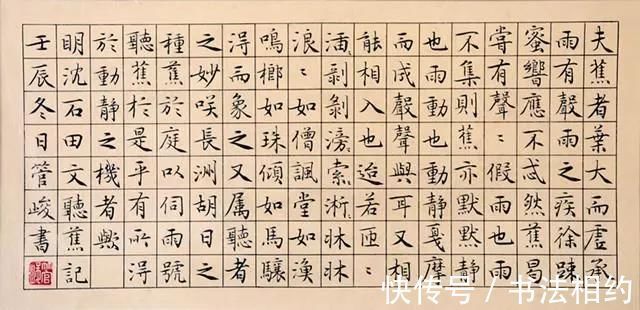 夫蕉者葉大而虛承
雨有聲雨之疾徐踈
蜜響應不忒然蕉曷
嘗有聲〻假雨也雨
不集則蕉亦默默靜
也雨動也動靜戛摩
而成聲聲與耳又相
能相入也迨若匝〻
剥剥滂索淅牀牀
浪〻如僧諷堂如漁
鳴榔如珠傾如馬驤
得而象之又属聽者
之妙咲長洲胡日之
種蕉於庭以伺雨號
聽蕉於是乎有所得
於動靜之機者歟
明沈石田文聽蕉記
壬辰冬日管峻書
快传号 / 书法相约